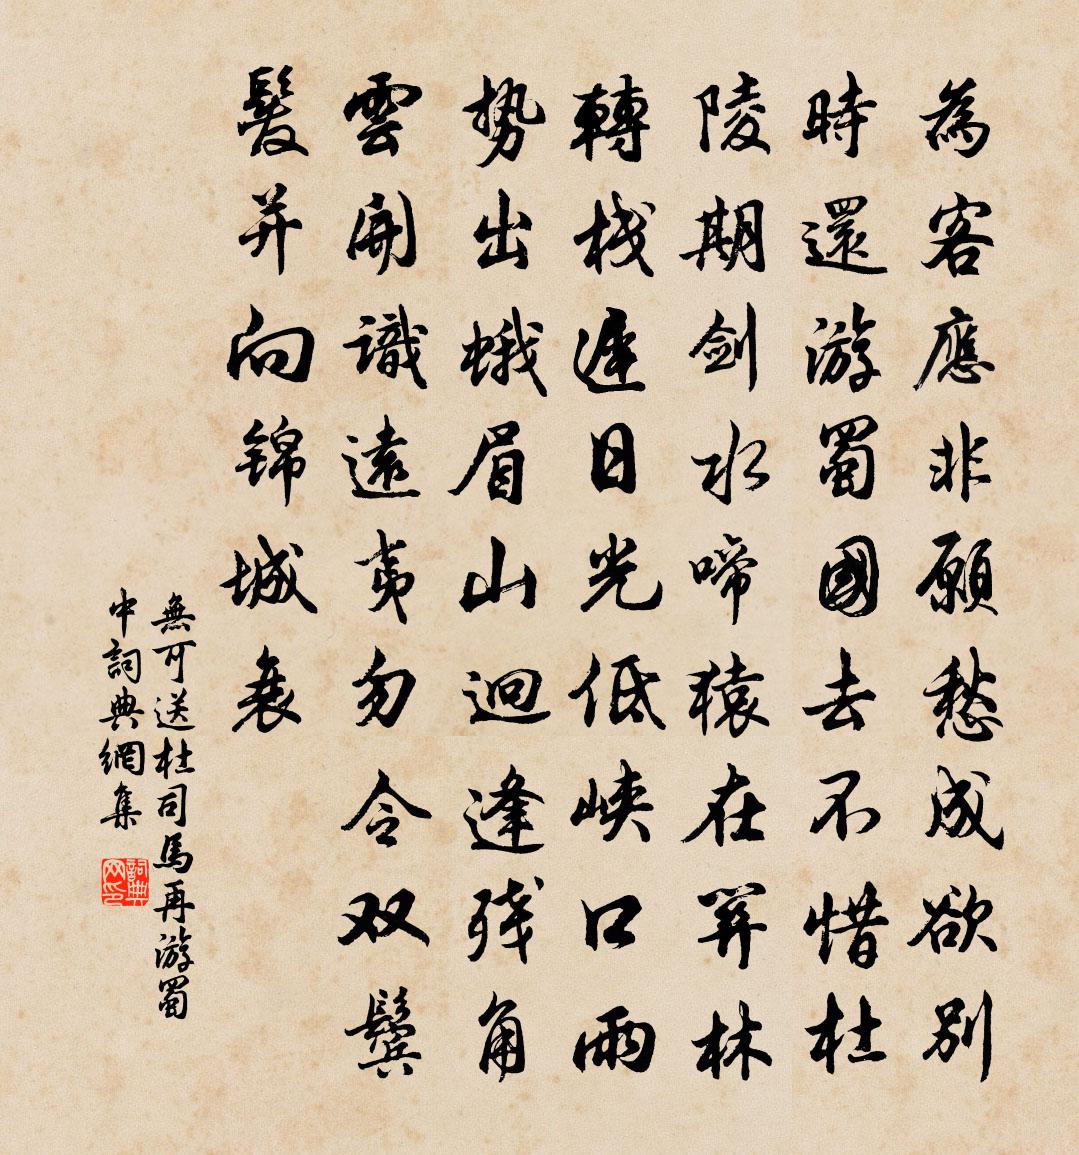 為客應非願愁成欲別
時還游蜀國去不惜杜
陵期劍水啼猿在關林
轉棧遲日光低峽口雨
勢出蛾眉山迥逢殘角
雲開識遠夷勿令双鬢
髮并向錦城衰
無可送杜司馬再游蜀
中詞典網集
詞典
网印